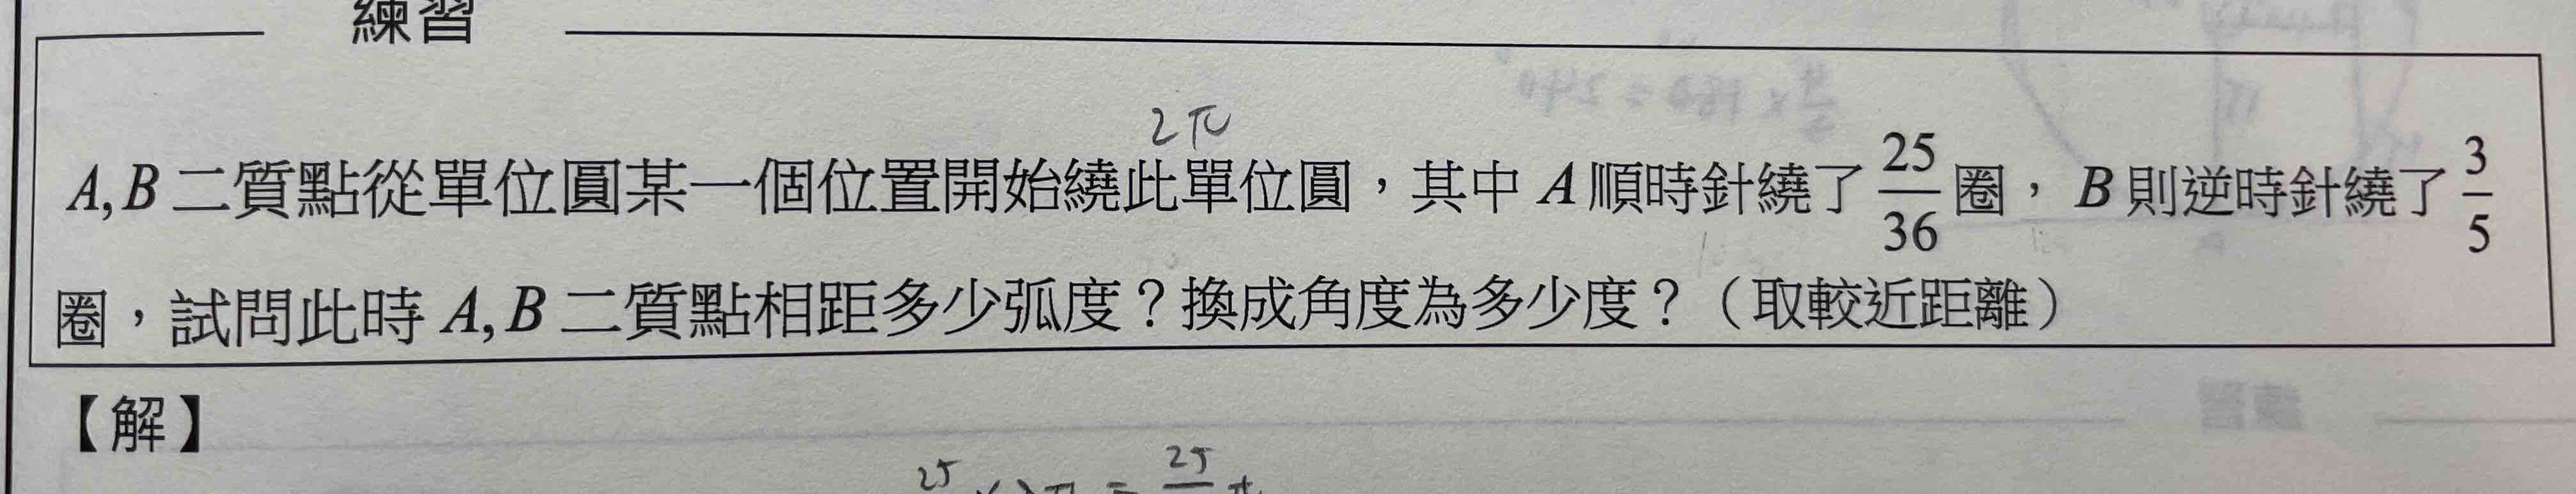 練習
2π
A, B 二質點從單位圓某一個位置開始繞此單位圓，其中 A 順時針繞了 25/36 圈， B 則逆時針繞了 3/5
圈，試問此時 A, B 二質點相距多少弧度？換成角度為多少度？（取較近距離）
【解】
25 × 2π = 25 π